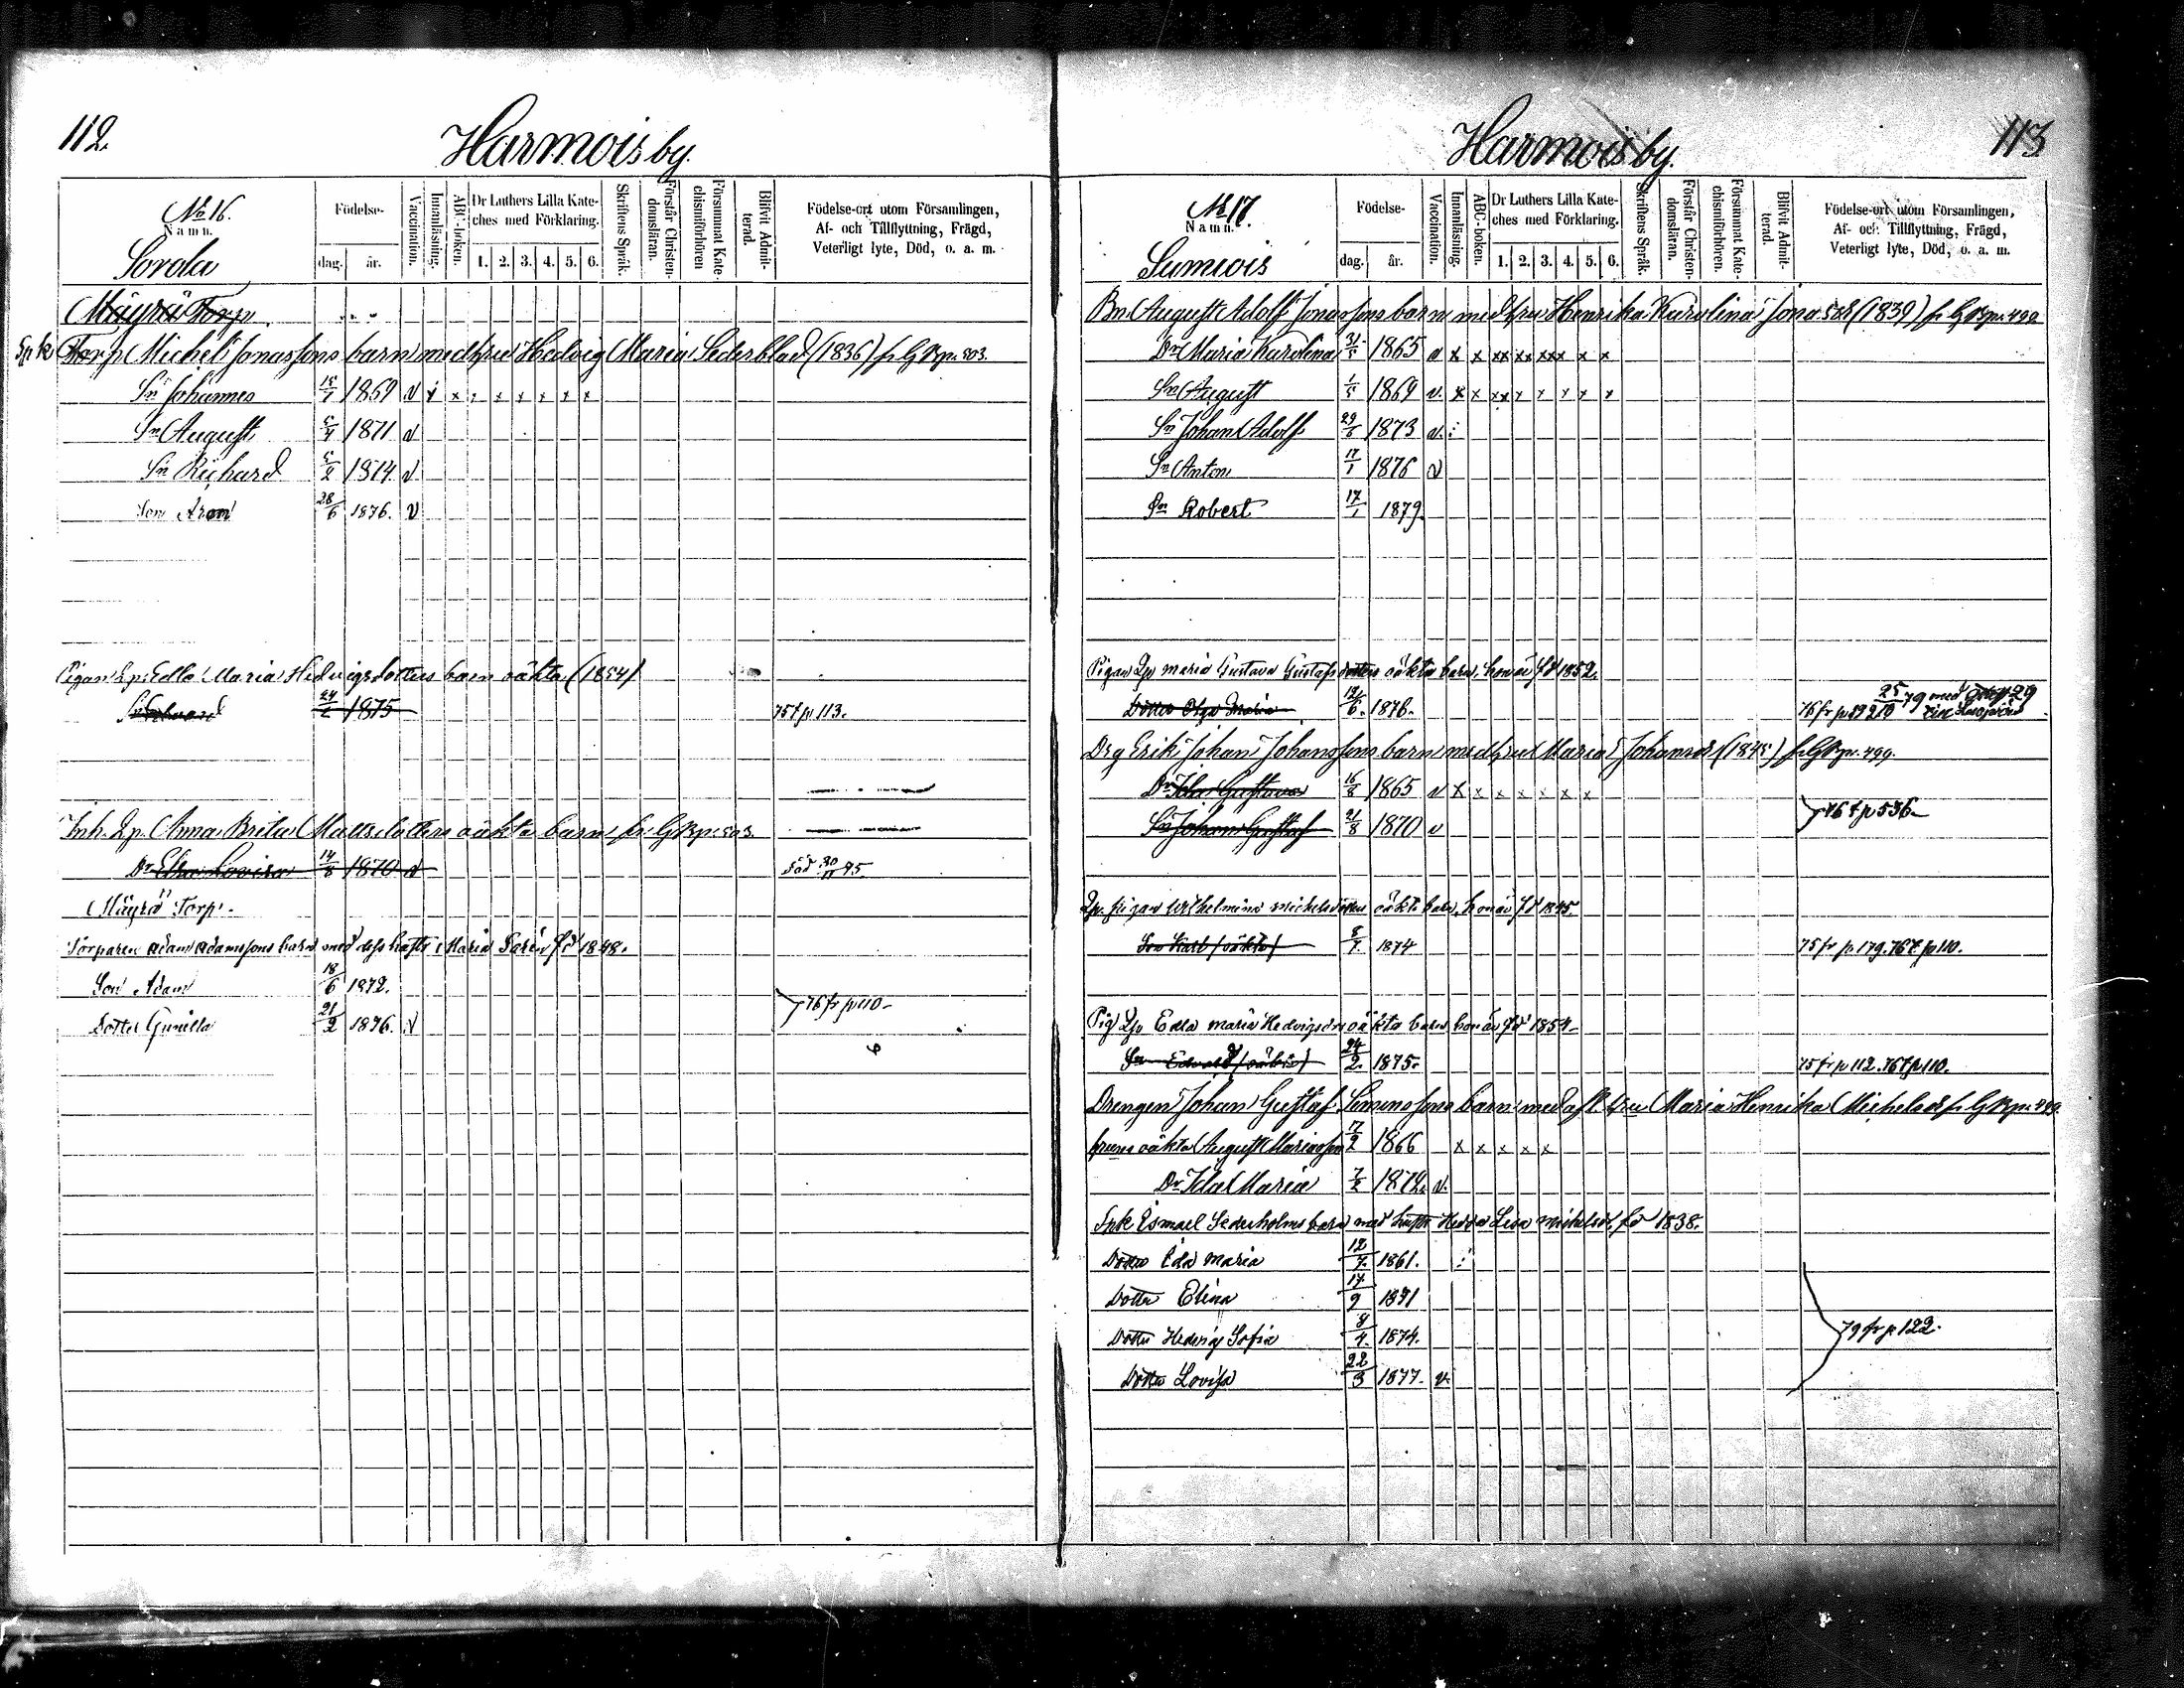 112.
Harmois by.
No 16.
Namn.
Sorola
Födelse-
dag.
år.
Vaccination.
Innanläsning.
ABC-boken.
Dr Luthers Lilla Kate-
ches med Förklaring.
1. 2. 3. 4. 5. 6.
Skriftens Språk.
Förstår Christen-
domsläran.
Försummat Kate-
chismiförhören
Blifvit Admit-
terad.
Födelse-ort utom Församlingen,
Af- och Tillflyttning, Frägd,
Veterligt lyte, Död, o. a. m.
Mäyrä Torp.
Spk Torp Michel Jonassons barn med hru Hedvig Maria Sederblad (1836) fr GBpn. 503.
Sn Johannes 15/1 1869 v x x x x x x x x
Sn August 5/4 1871 v
Sn Richard 5/2 1874 v
Son Aron 28/6 1876. v
Pigan Lp. Edla Maria Hedvigsdotters barn oäkta (1854)
Sn Edvard 24/2 1875 75 t p 113.
Inh. Lp. Anna Brita Mattsdotters oäkta barn fr. GBpn. 503.
Dr Elsa Lovisa 14/8 1870 v död 30/11 75.
Mäyrä Torp.
Torparen Adam Adamssons barn med dess hustr: Maria född 1848.
Son Adam 18/6 1872.
76 fr p 110
Dotter Gunilla 21/2 1876. v
113
Harmois by.
No 17.
Namn.
Sumiois
Födelse-
dag.
år.
Vaccination.
Innanläsning.
ABC-boken.
Dr Luthers Lilla Kate-
ches med Förklaring.
1. 2. 3. 4. 5. 6.
Skriftens Språk.
Förstår Christen-
domsläran.
Försummat Kate-
chismiförhören.
Blifvit Admit-
terad.
Födelse-ort utom Församlingen,
Af- och Tillflyttning, Frägd,
Veterligt lyte, Död, o. a. m.
Bn. August Adolf Jonassons barn med hru Henrika Karolina Jonasdr (1839) fr GBpn. 499
Dr Maria Karolina 31/5 1865 v x x xx xx xxx x x
Sn August 1/5 1869 v. x x xx x x x x x
Sn Johan Adolf 29/6 1873 v.
Sn Anton 17/1 1876 v
Sn Robert 17/1 1879.
Pigan Lp Maria Gustava Gustafsdotters oäkta barn, hon är fd 1852.
Dotter Olga Maria 12/6. 1876. 76 fr p 59 25/10 79 med
Drg Erik Johan Johanssons barn med hru Maria Johansdr (1845) fr GBpn. 499.
Dr Ida Gustava 16/8 1865 v x x x x x x x
76 t p 536
Sn Johan Gustaf 21/8 1870 v
Lp. pigan Wilhelmina Michelsdotters oäkta barn, hon är fd 1845.
Son Karl (oäkta) 8/7 1874 75 fr p. 179. 76 t p 110.
Pig Lp Edla Maria Hedvigsdrs oäkta barn hon är fd 1854
Sn Edvard (oäkta) 24/2. 1875. 75 fr p 112. 76 t p 110.
Drengen Johan Gustaf Simonssons barn med afl. hru Maria Henrika Michelsdr fr GBpn. 499.
hruns oäkta August Mariasson 17/2 1866 x x x x x
Dr Ida Maria 7/2 1872. v.
Spk Esmael Sederholms barn med hustr Hedda Lisa Michelsdr, fd 1838.
Dotter Eda Maria 12/7. 1861.
Dotter Elina 17/9 1871
Dotter Hedvig Sofia 8/4. 1874.
79 fr p 122.
Dotter Lovisa 22/3 1877. v.